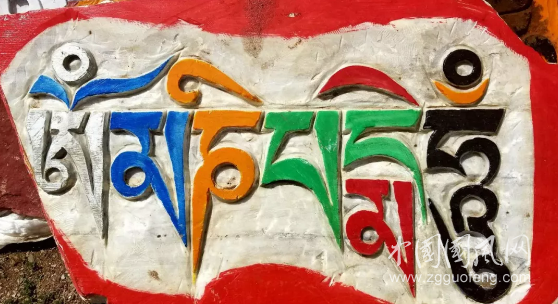 ཨོཾམཎིཔདྨེཧཱུྃ
中国国风网
www.zgguofeng.com